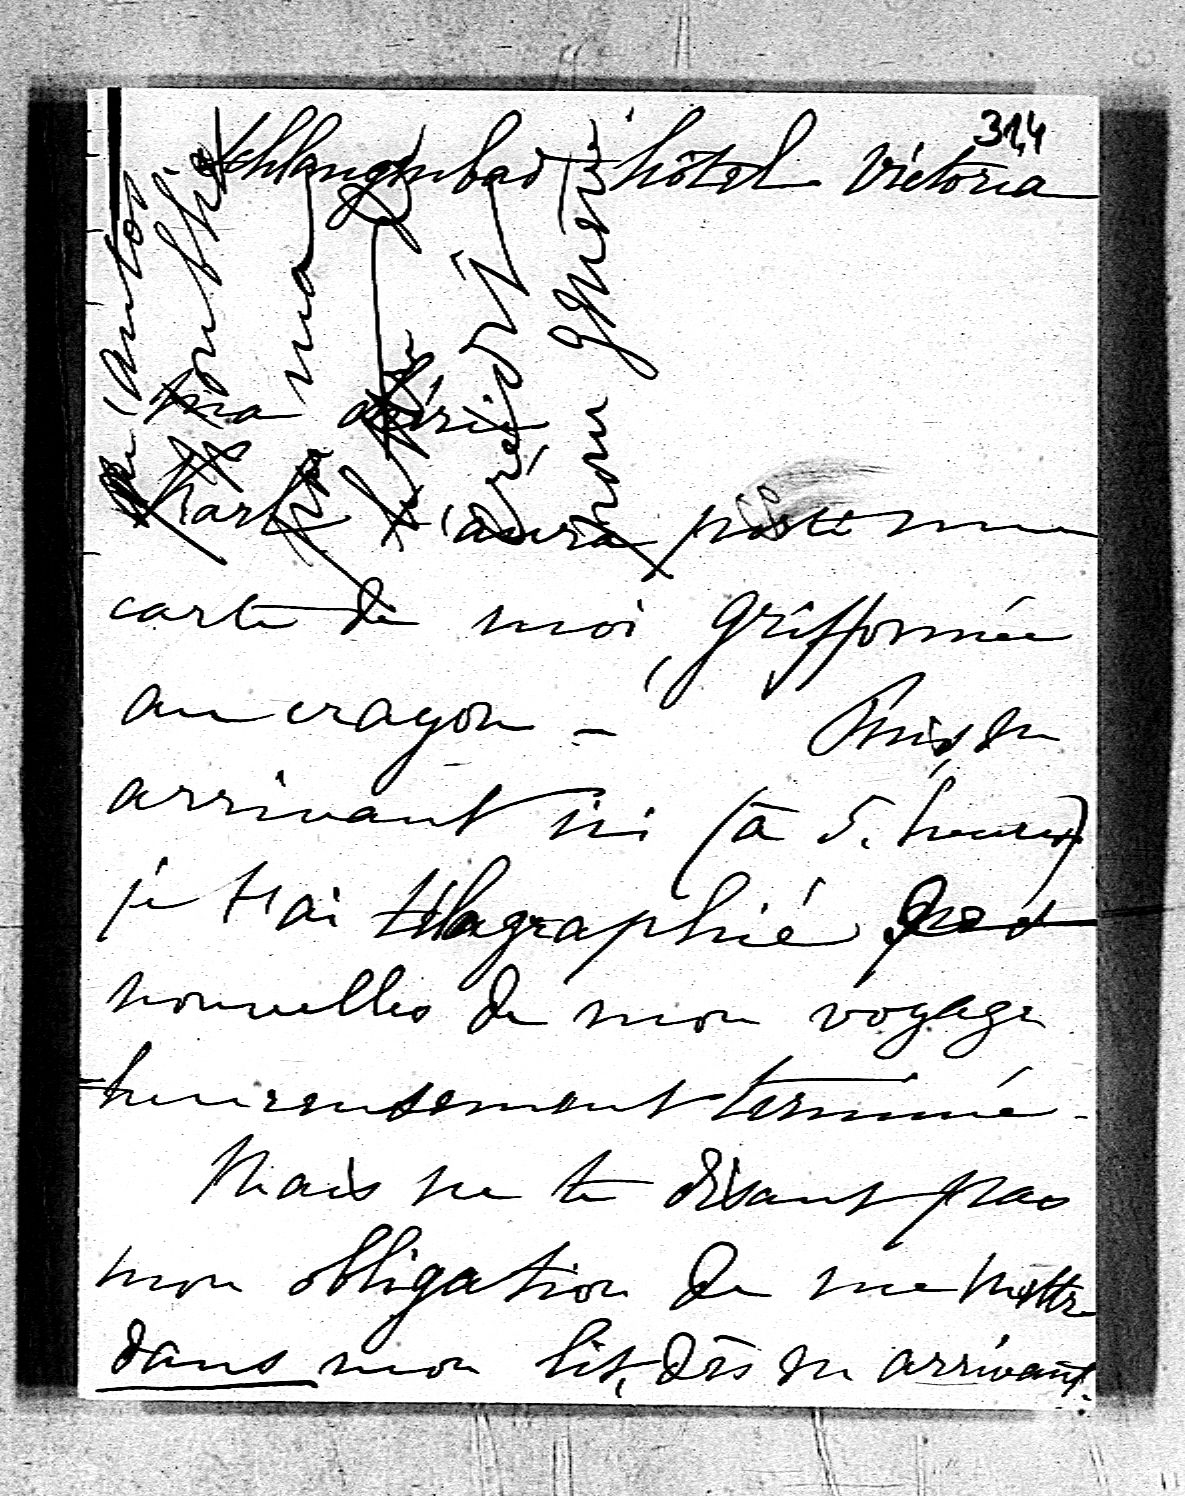 314
Schlangenbad hôtel Victoria
ma chérie
Karl t'aura posté une
carte de moi, griffonnée
au crayon –   Puis, en
arrivant ici (à 5. heures)
je t'ai télégraphié
nouvelles de mon voyage
heureusement terminé.
Mais ne te disant pas
mon obligation de me mettre
dans mon lit, dès en arrivant.
oublié
ma
mon